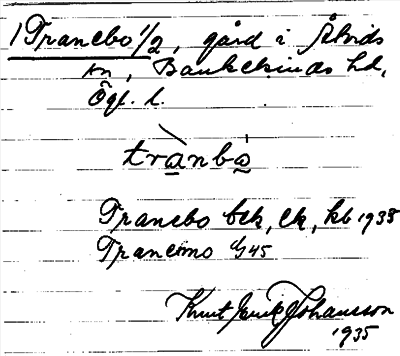 1 Tranebo 1/2, gård i Åtvids
sn, Bankekinds hd,
Ögl. l.
tranbo
Tranebo bck, ek, kb 1933
Tranemo 45
Knut Erik Johansson
1935